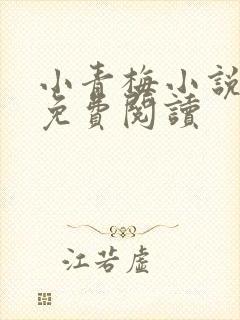 小青梅小說
免費閱讀
江若虛